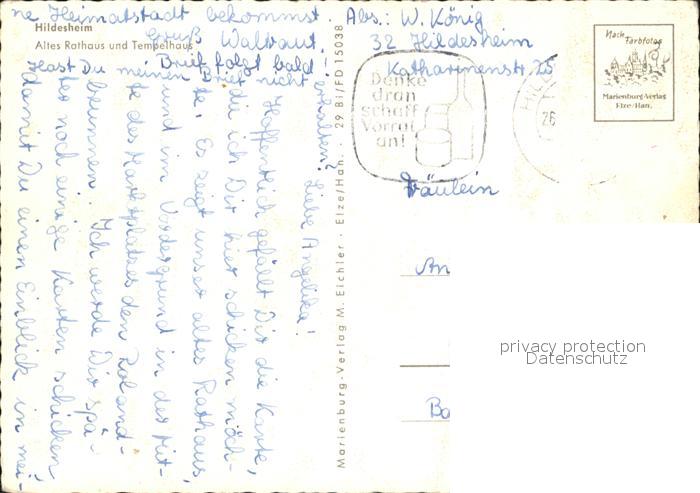 Hildesheim
Altes Rathaus und Tempelhaus
Liebe Angelika!
Hoffentlich gefällt Dir die Karte,
die ich Dir hier schicken möch-
te. Es zeigt unser altes Rathaus,
und im Vordergrund in der Mit-
te des Marktplatzes den Roland-
brunnen. Ich werde Dir spä-
ter noch einige Karten schicken
damit Du einen Einblick in mei-
ne Heimatstadt bekommst.
Gruß Waltraut.
Brief folgt bald!
Hast Du meinen Brief nicht
erhalten?
Marienburg-Verlag M. Eichler · Elze/Han. · 29 Bi/FD 15038
Abs.: W. König
32 Hildesheim
Katharinenstr. 25
Denke
dran
schaff
Vorrat
an!
HIL
26
Nach Farbfotos
Marienburg-Verlag
Elze/Han.
Fräulein
An
Ba
privacy protection
Datenschutz